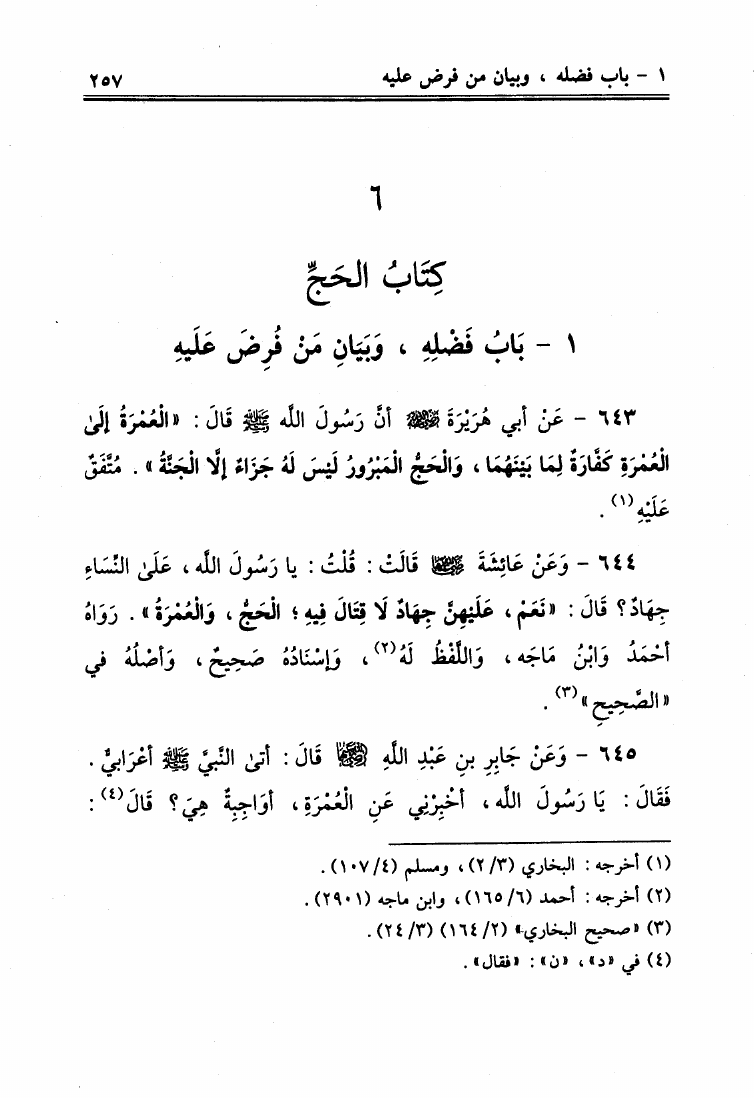 ١ - باب فضله ، وبيان من فرض عليه ٢٥٧
٦
كِتَابُ الحَجِّ
١ - بَابُ فَضْلِهِ ، وَبَيَانِ مَنْ فُرِضَ عَلَيهِ
٦٤٣ - عَنْ أبي هُرَيْرَةَ رضي الله عنه أنَّ رَسُولَ الله ﷺ قَالَ : «الْعُمْرَةُ إلَىٰ
الْعُمْرَةِ كَفَّارَةٌ لِمَا بَيْنَهُمَا ، وَالْحَجُّ الْمَبْرُورُ لَيْسَ لَهُ جَزَاءٌ إلَّا الْجَنَّةُ» . مُتَّفَقٌ
عَلَيْهِ(١) .
٦٤٤ - وَعَنْ عَائِشَةَ رضي الله عنها قَالَتْ : قُلْتُ : يا رَسُولَ الله ، عَلَىٰ النِّسَاءِ
جِهَادٌ؟ قَالَ : «نَعَمْ ، عَلَيْهِنَّ جِهَادٌ لَا قِتَالَ فِيهِ ؛ الْحَجُّ ، وَالْعُمْرَةُ» . رَوَاهُ
أحْمَدُ وَابْنُ مَاجَه ، وَاللَّفْظُ لَهُ(٢) ، وَإسْنَادُهُ صَحِيحٌ ، وَأصْلُهُ في
«الصَّحِيحِ»(٣) .
٦٤٥ - وَعَنْ جَابِرِ بنِ عَبْدِ اللَّهِ رضي الله عنهما قَالَ : أتىٰ النَّبيَّ ﷺ أعْرَابيٌّ .
فَقَالَ : يَا رَسُولَ الله ، أخْبِرْنِي عَنِ الْعُمْرَةِ ، أوَاجِبَةٌ هِيَ ؟ قَالَ(٤) :
(١) أخرجه : البخاري (٢/٣) ، ومسلم (١٠٧/٤) .
(٢) أخرجه : أحمد (١٦٥/٦) ، وابن ماجه (٢٩٠١) .
(٣) «صحيح البخاري» (١٦٤/٢) (٢٤/٣) .
(٤) في «د» ، «ن» : «فقال» .